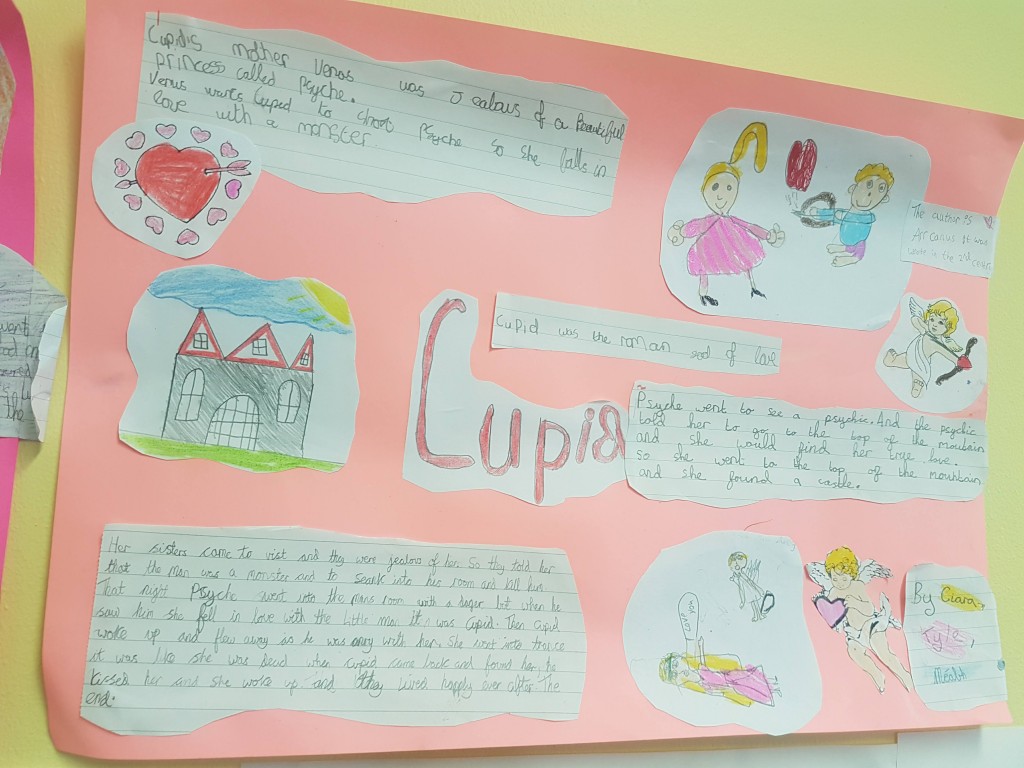 Cupids mother Venus was Jealous of a Beautiful
princess called Psyche.
Venus wants Cupid to shoot Psyche so she falls in
love with a monster
The author is
Arcanus it was
in the 2nd
Cupid was the roman god of love
Cupid
Psyche went to see a psychic. And the psychic
told her to go to the top of the mountain
and she would find her true love.
so she went to the top of the mountain
and she found a castle.
Her sisters came to vist and they were jealous of her. So they told her
that the man was a monster and to into his room and kill him
That night Psyche went into the mans room with a dager but when he
saw him she fell in love with the little man it was Cupid. Then Cupid
woke up and flew away so he was with her. She went into
it was like she was Dead when cupid came back and found her, he
kissed her and she woke up and they lived happly ever after. The
end.
By Ciara,
Kyle,